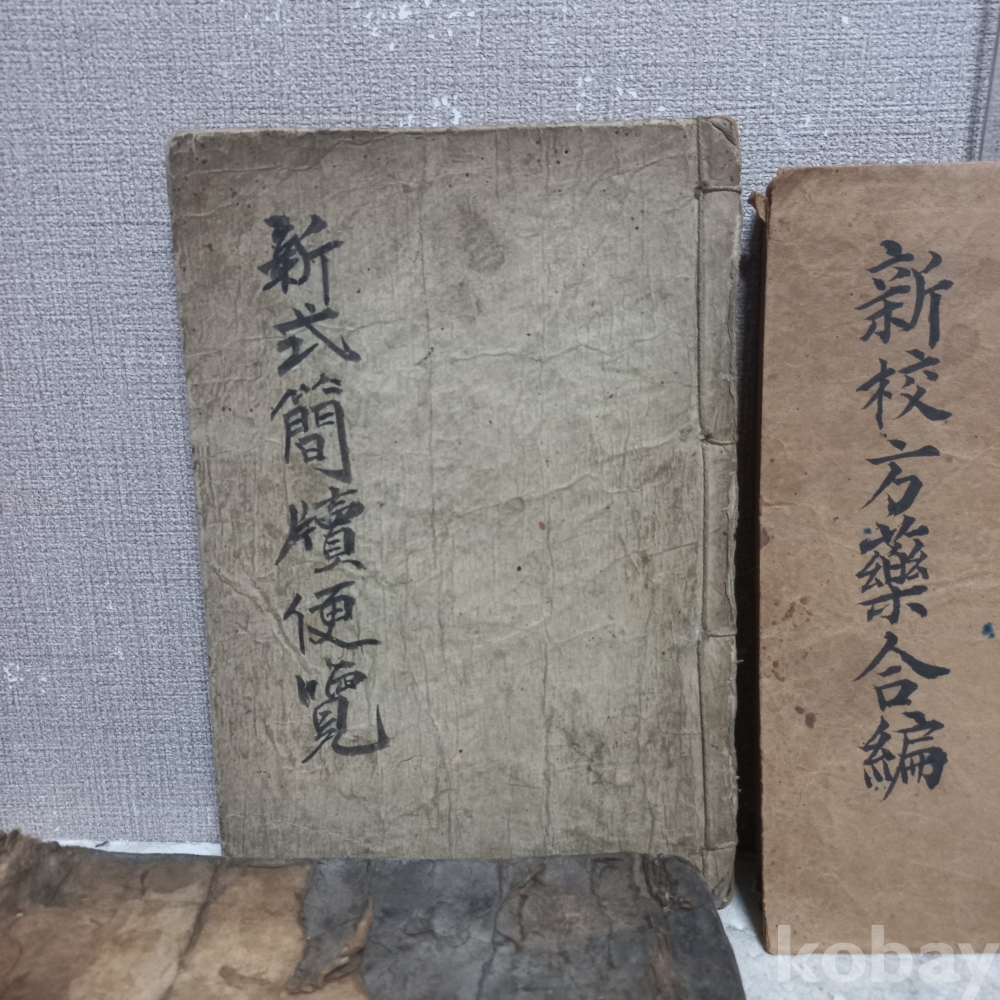 新式簡牘便覽
新校方藥合編
kobay